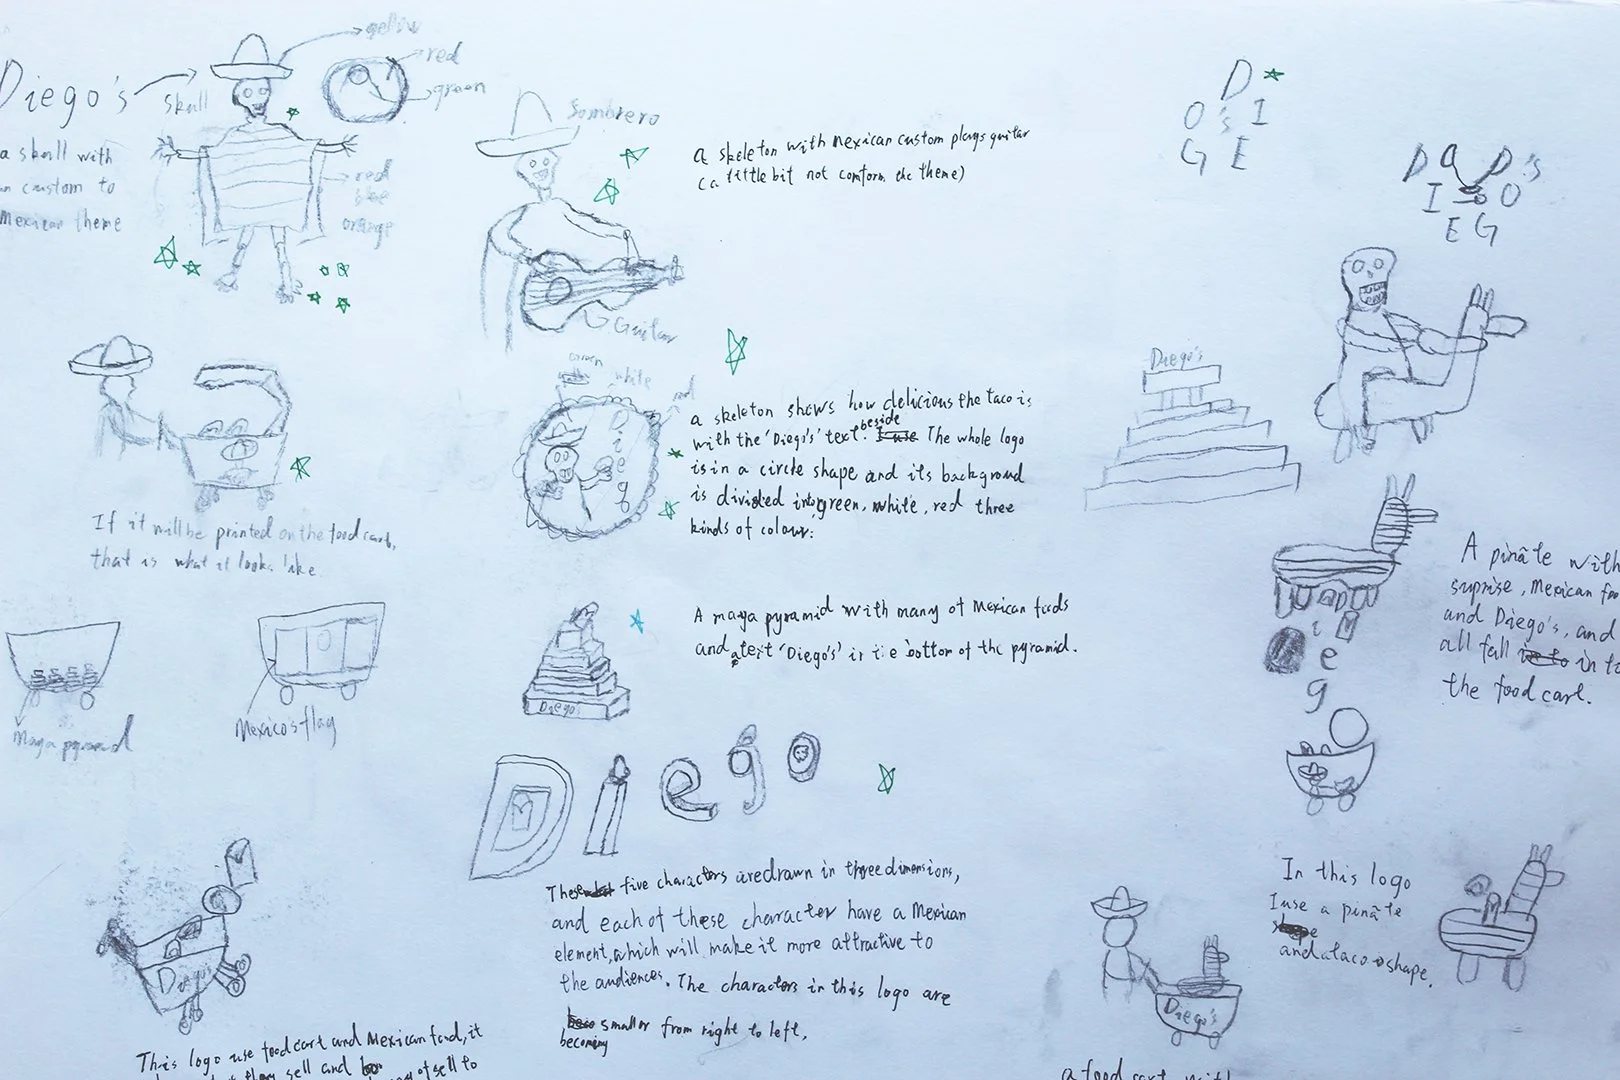 Diego's
skull
yellow
red
green
a skull with
custom to
Mexican theme
red
blue
orange
Sombrero
Guitar
a skeleton with Mexican custom plays guitar
(a little bit not comform the theme)
If it will be printed on the food cart,
that is what it looks like.
green
white
red
Dieg
a skeleton shows how delicious the taco is
with the 'Diego's' text. beside The whole logo
is in a circle shape and its background
is divided into green, white, red three
kinds of colour.
Maya pyramid
Mexico's flag
Diego's
A maya pyramid with many of Mexican foods
and 'Diego's' is the bottom of the pyramid.
Diego
These five characters are drawn in three dimensions,
and each of these character have a Mexican
element, which will make it more attractive to
the audiences. The characters in this logo are
becoming smaller from right to left.
Diego's
This logo use food cart and Mexican food, it
they sell and
of sell to
D
O 's I
G E
D O's
I O
E G
Diego's
A pinãte with
suprise, Mexican
and Diego's, and
all fall in to
the food cart.
i
e
g
In this logo
I use a pinãte
and a taco shape.
Diego's
a food cart with